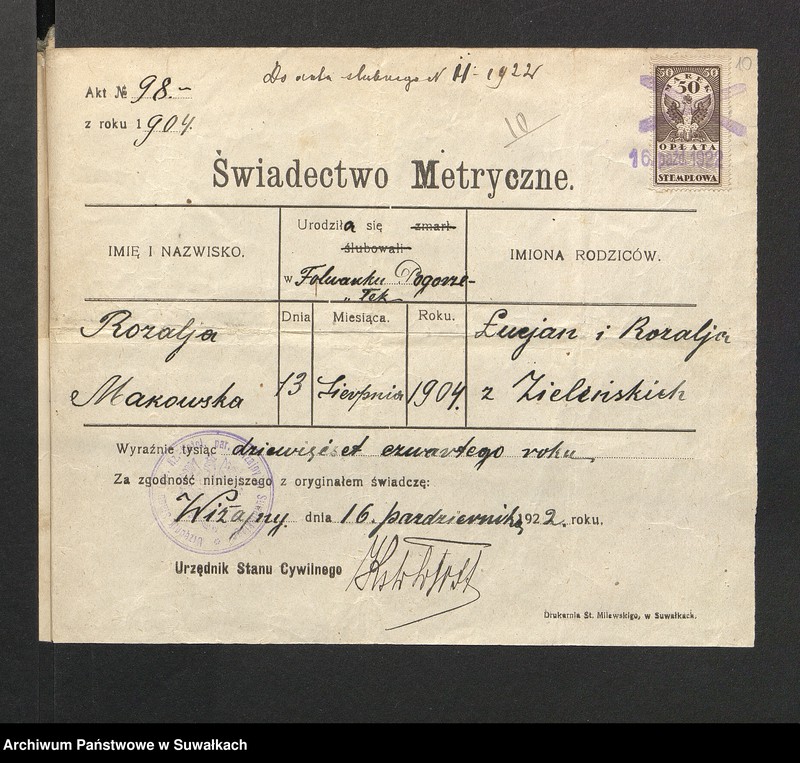 Do aktu slubnego N 11 - 1922
10
Akt № 98.-
z roku 1904.
10
50 50
MAREK
50
OPŁATA
STEMPLOWA
16. paźd. 1922
Świadectwo Metryczne.
IMIĘ I NAZWISKO.
Urodziła się zmarł
ślubowali
w Folwarku Pogorze-
"łek
IMIONA RODZICÓW.
Dnia Miesiąca. Roku.
Rozalja
Makowska
13 Sierpnia 1904.
Łucjan i Rozalja
z Zielińskich
Wyraźnie tysiąc dziewięćset czwartego roku
Za zgodność niniejszego z oryginałem świadczę:
Wiżajny. dnia 16. pazdziernika 1922. roku.
Urzędnik Stanu Cywilnego
Drukarnia St. Milewskigo, w Suwałkach.
Archiwum Państwowe w Suwałkach